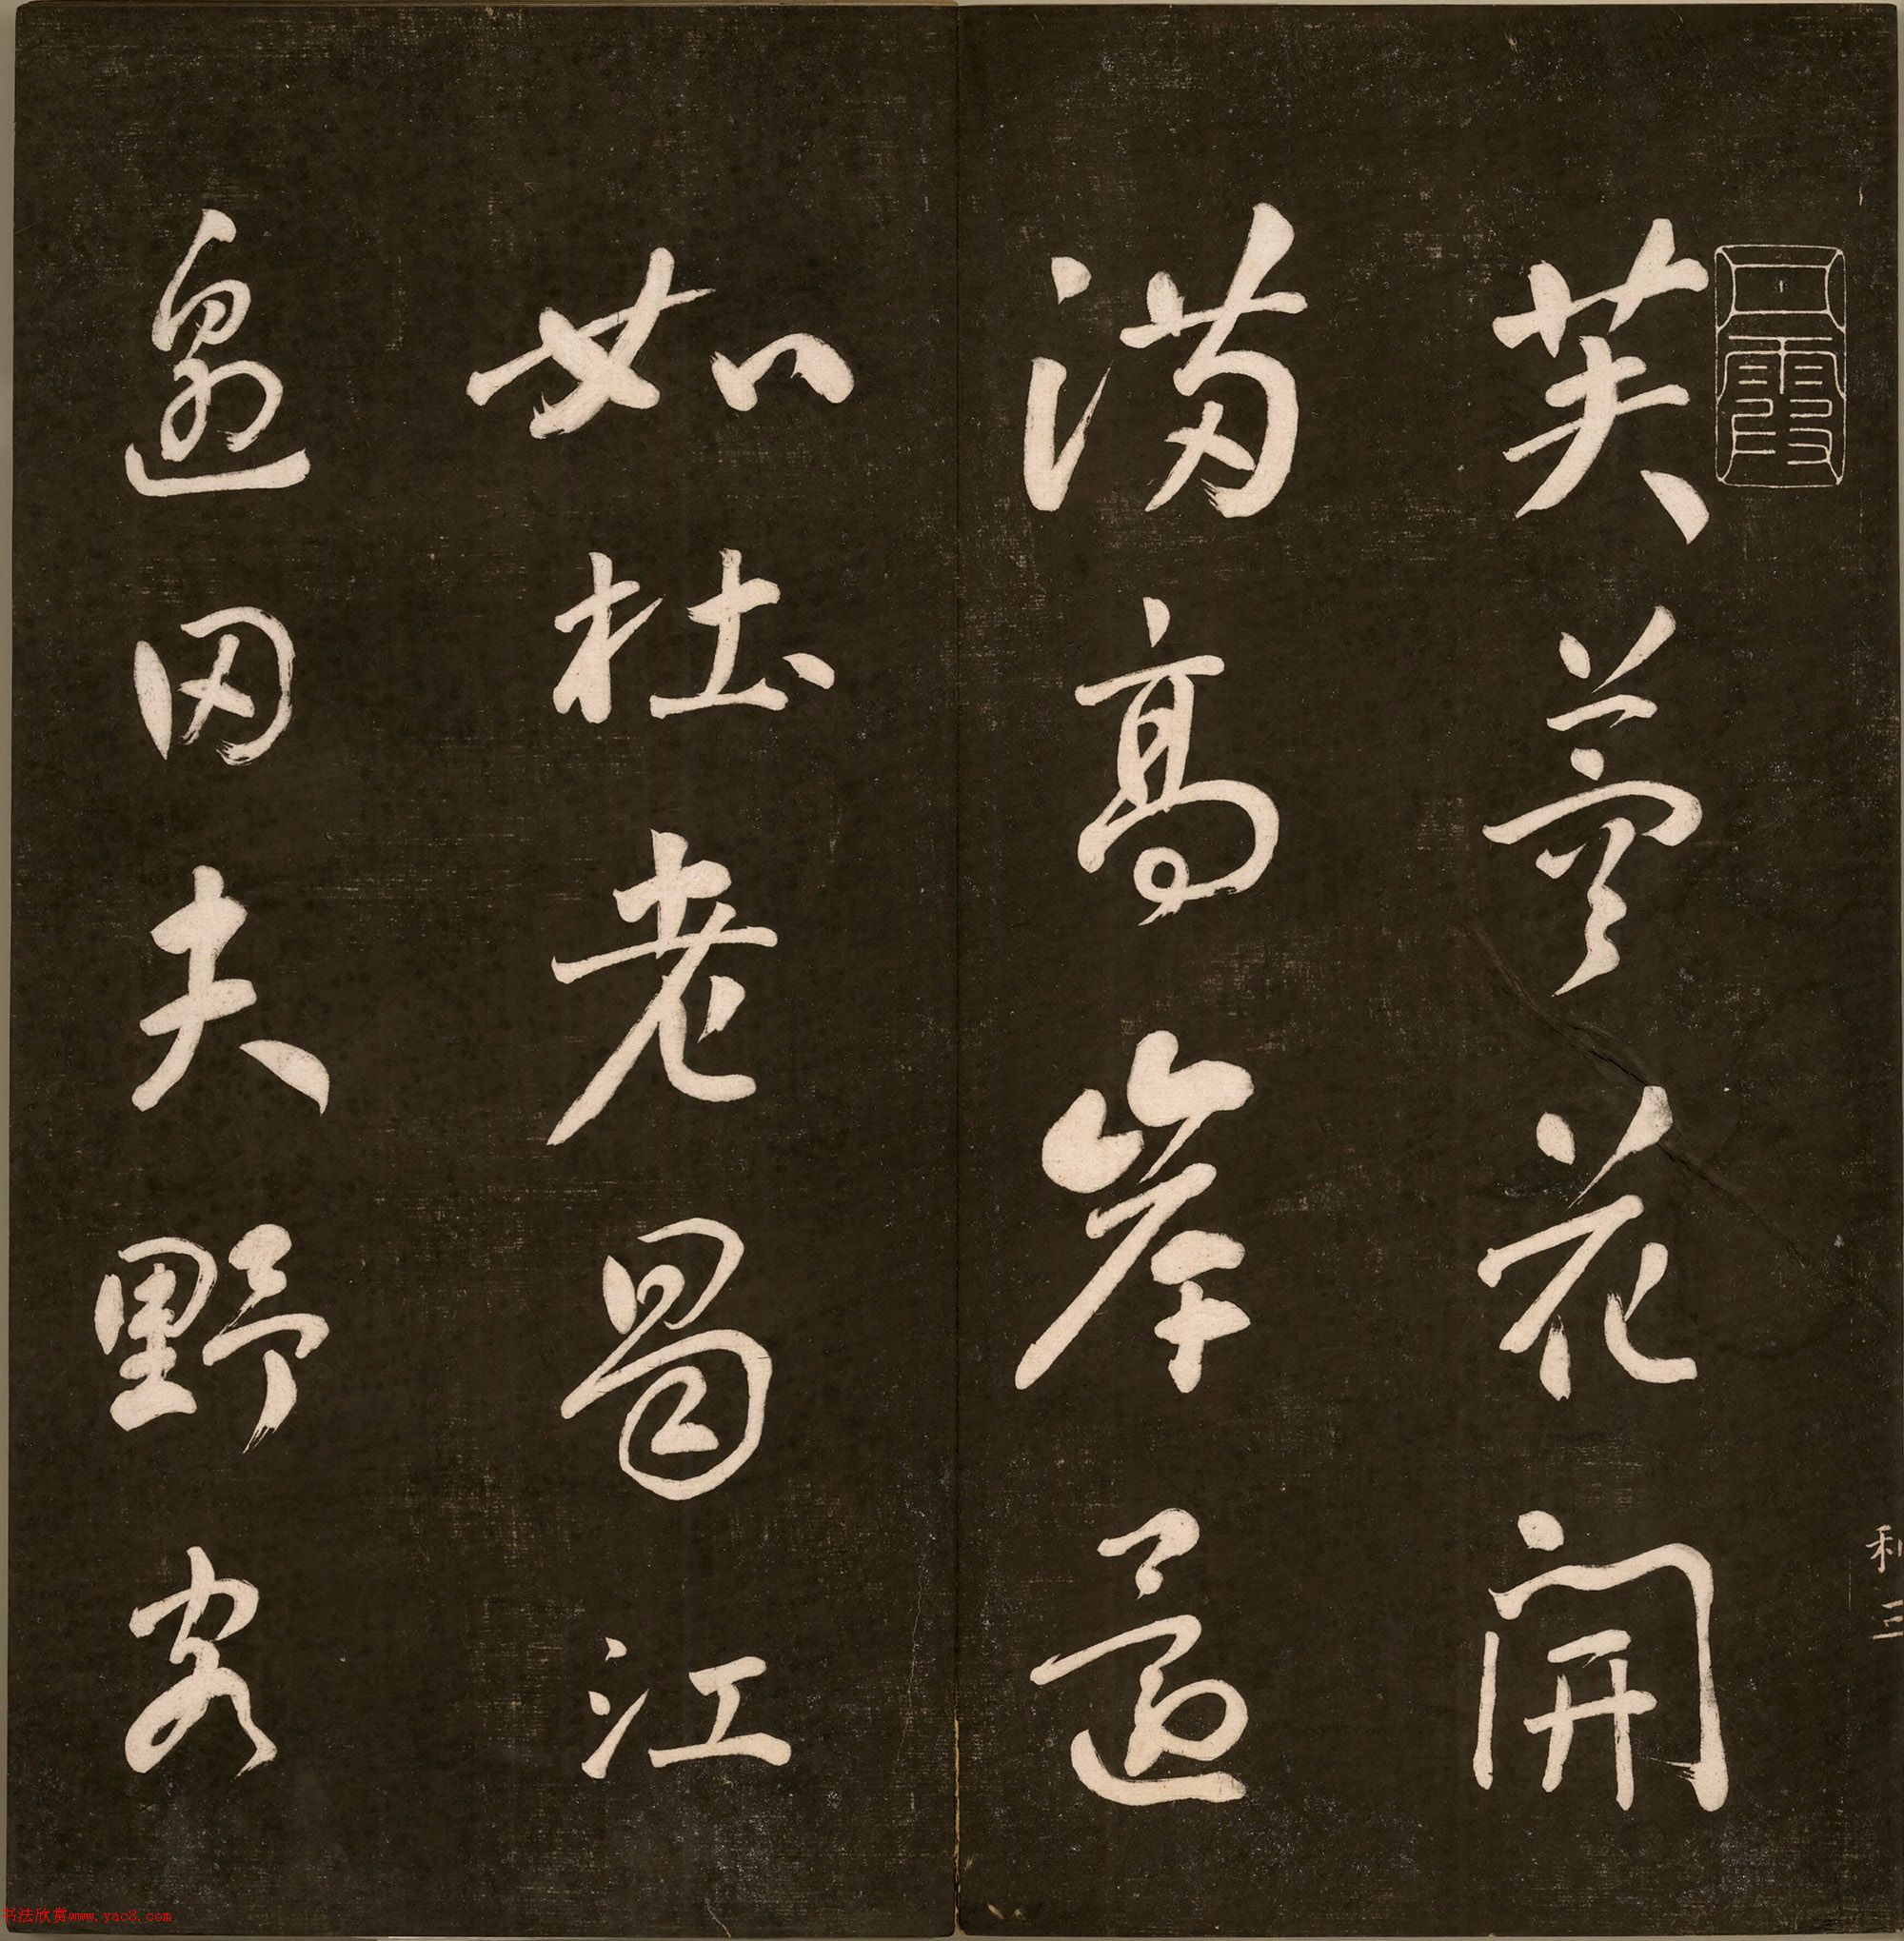 芙蓉花開
滿高岸還
如杜老蜀江
邊田夫野客
利三
书法欣赏www.yac8.com